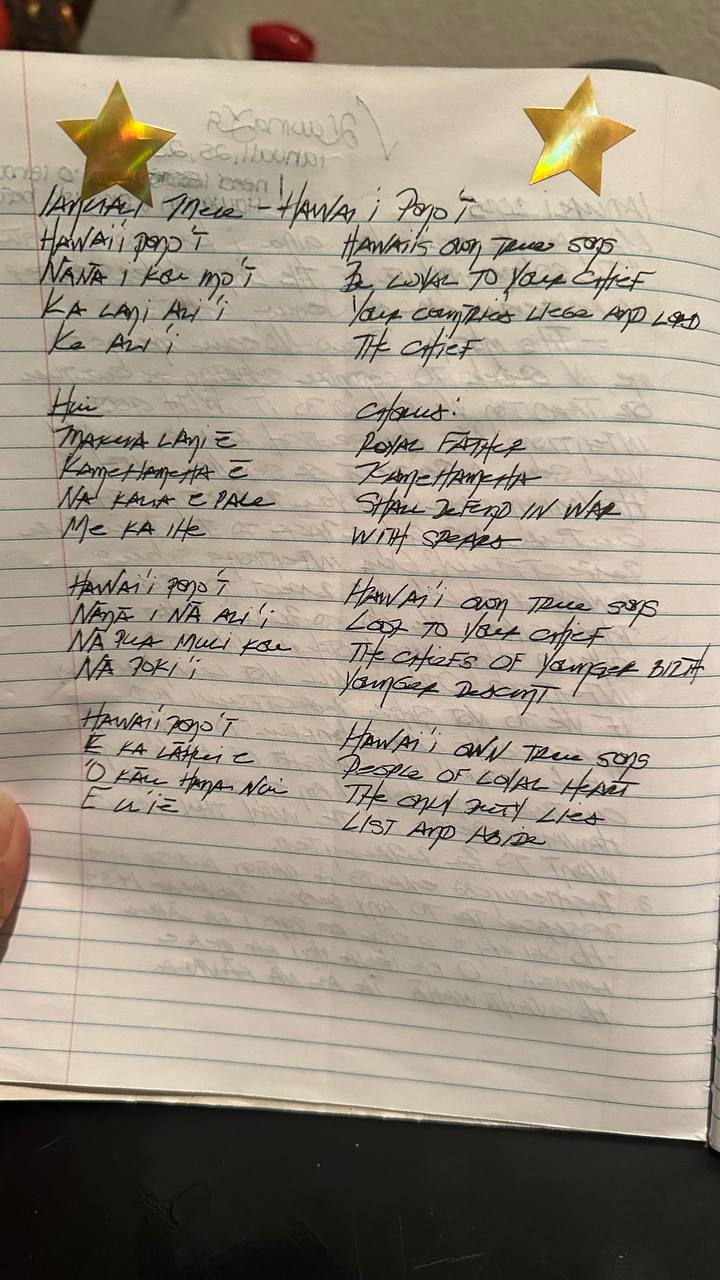 IANUALI Mele - HAWAI'I PONO'Ī
HAWAI'I PONO'Ī
NĀNĀ I KOU MO'Ī
KA LANI ALI'I
Ke ALI'I
HAWAII'S OWN TRUE SONS
Be LOYAL TO YOUR CHIEF
YOUR COUNTRIES LIEGE AND LORD
THE CHIEF
HUI
MAKUA LANI Ē
KAMEHAMEHA Ē
NA KAUA E PALE
Me KA IHe
CHORUS:
ROYAL FATHER
KAMEHAMEHA
SHALL DEFEND IN WAR
WITH SPEARS
HAWAI'I PONO'Ī
NĀNĀ I NĀ ALI'I
NĀ PUA MULI KOU
NĀ POKI'I
HAWAI'I OWN TRUE SONS
LOOK TO YOUR CHIEF
THE CHIEFS OF YOUNGER BIRTH
YOUNGER DESCENT
HAWAI'I PONO'Ī
E KA LĀHUI E
'O KĀU HANA NUI
E UI Ē
HAWAI'I OWN TRUE SONS
PEOPLE OF LOYAL HEART
THE ONLY DUTY LIES
LIST AND ABIDE